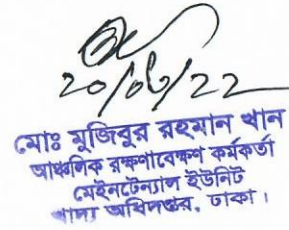 20/06/22
মোঃ মুজিবুর রহমান খান
আঞ্চলিক রক্ষণাবেক্ষণ কর্মকর্তা
মেইনটেন্যান্স ইউনিট
খাদ্য অধিদপ্তর, ঢাকা।